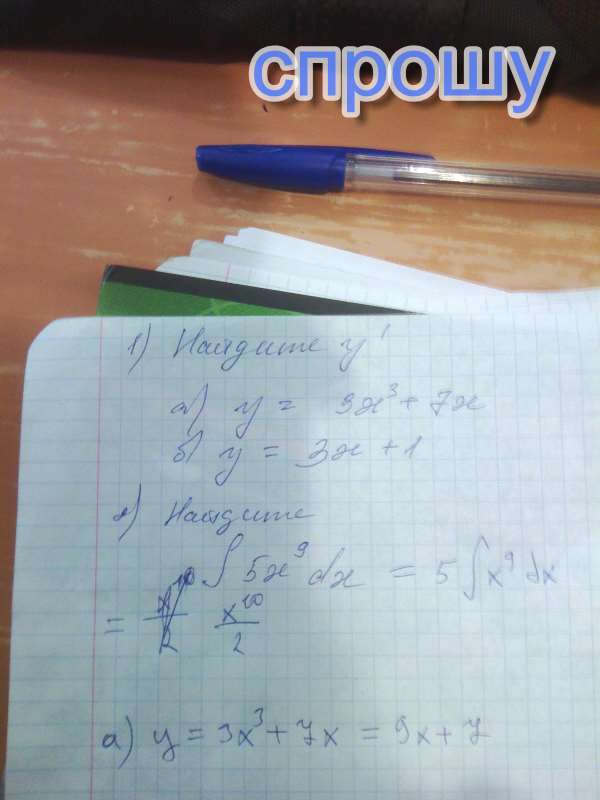 спрошу
1) Найдите y'
а) y = 3x³ + 7x
б) y = 3x + 1
2) Найдите
∫ 5x⁹ dx = 5 ∫ x⁹ dx
= x¹⁰/2 x¹⁰/2
а) y = 3x³ + 7x = 9x + 7